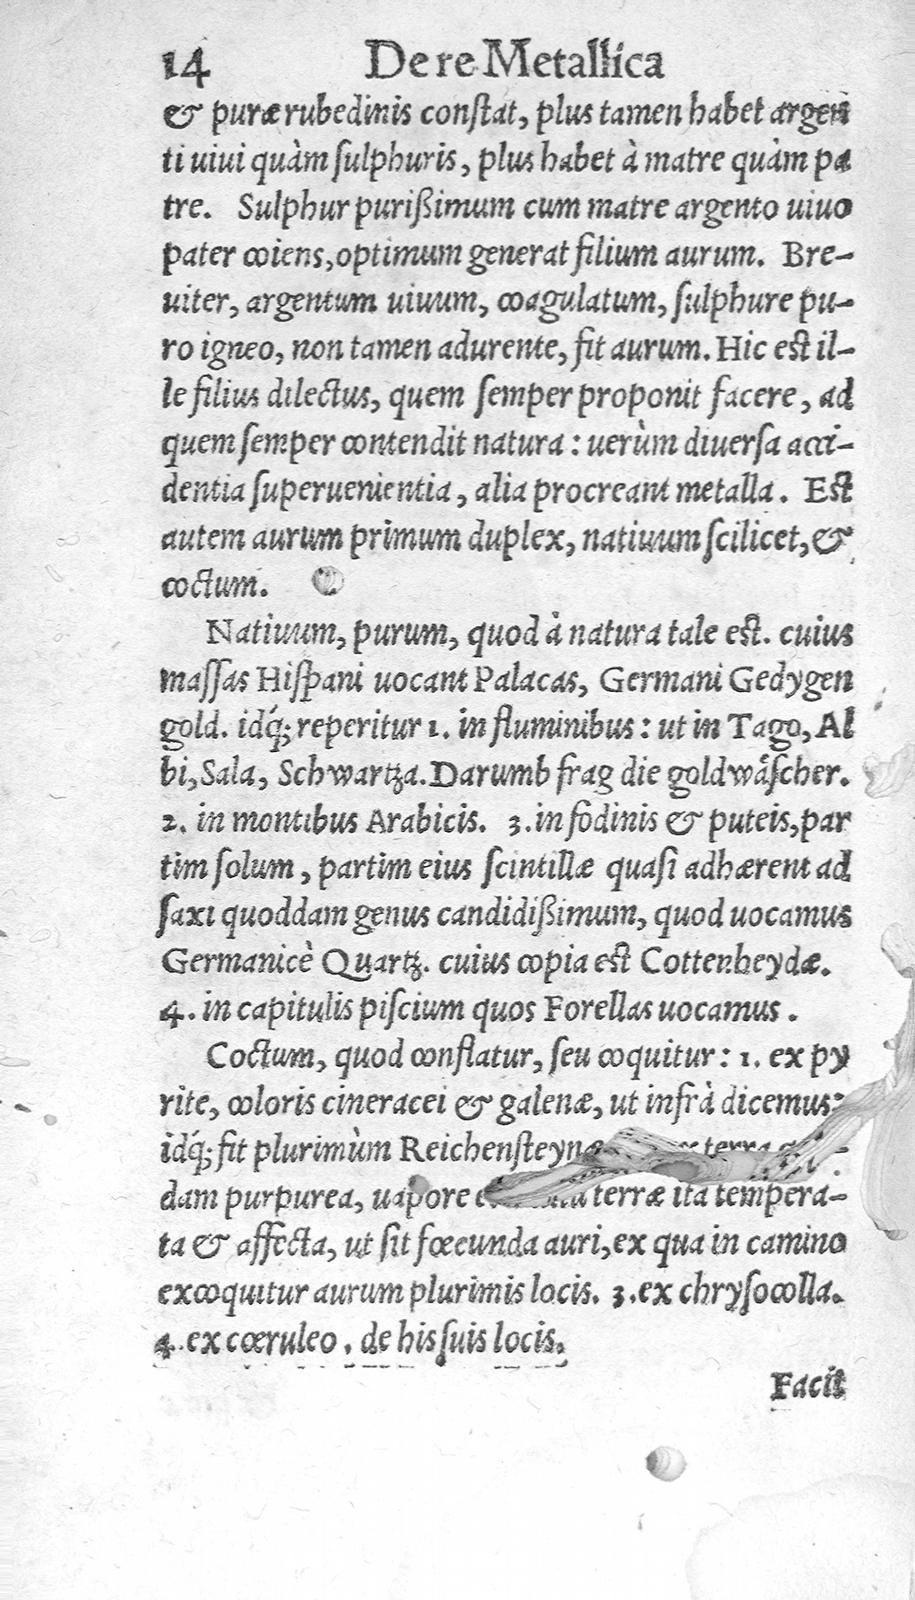 14 De re Metallica
& puræ rubedinis constat, plus tamen habet argen
ti uiui quàm sulphuris, plus habet à matre quàm pa
tre. Sulphur purißimum cum matre argento uiuo
pater coiens, optimum generat filium aurum. Bre-
uiter, argentum uiuum, coagulatum, sulphure pu-
ro igneo, non tamen adurente, fit aurum. Hic est il-
le filius dilectus, quem semper proponit facere, ad
quem semper contendit natura: uerùm diuersa acci-
dentia superuenientia, alia procreant metalla. Est
autem aurum primum duplex, natiuum scilicet, &
coctum.
Natiuum, purum, quod à natura tale est. cuius
massas Hispani uocant Palacas, Germani Gedygen
gold. idq́; reperitur 1. in fluminibus: ut in Tago, Al
bi, Sala, Schwartza. Darumb frag die goldwåscher.
2. in montibus Arabicis. 3. in fodinis & puteis, par
tim solum, partim eius scintillæ quasi adhærent ad
saxi quoddam genus candidißimum, quod uocamus
Germanicè Quartz. cuius copia est Cottenheydæ.
4. in capitulis piscium quos Forellas uocamus.
Coctum, quod conflatur, seu coquitur: 1. ex py
rite, coloris cineracei & galenæ, ut infrà dicemus:
idq́; fit plurimùm Reichensteynæ terra
dam purpurea, uapore terræ ita tempera-
ta & affecta, ut sit fœcunda auri, ex qua in camino
excoquitur aurum plurimis locis. 3. ex chrysocolla.
4. ex cœruleo. de his suis locis.
Facit